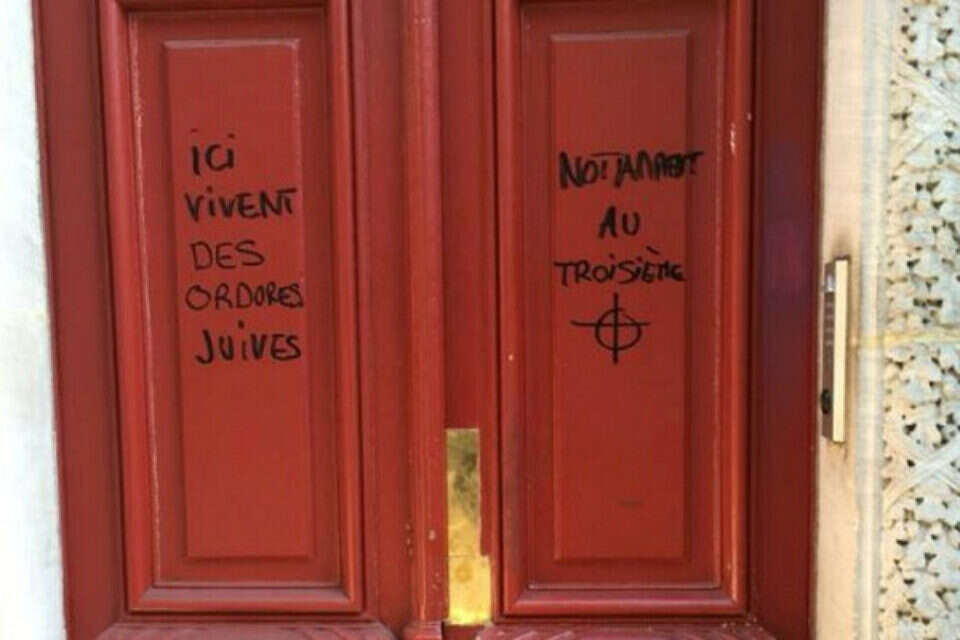 ici
VIVENT
DES
ORDORES
JUIVES
NOTAMMENT
AU
TROISIÈME